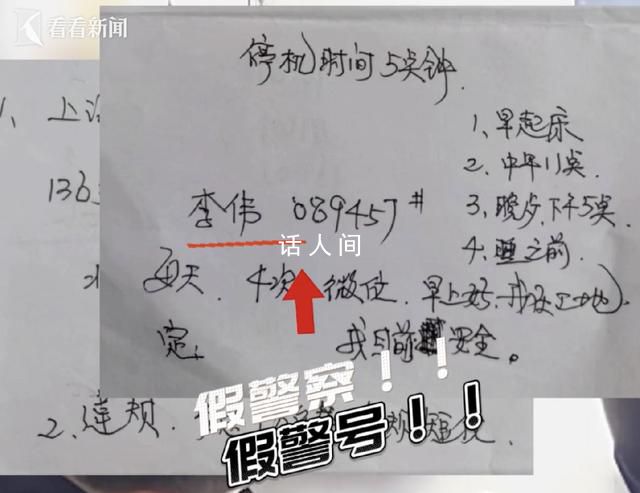 看看新闻
停机时间5分钟.
1、早起床
2.中午11点.
3、晚夕.下午5点
4、睡之前.
1、上海
136
李伟 089457#
话人间
每天.4次 微位.早上好.我在工地)
定. 我目前 安全。
假警察!!
假警号!!
2、违规. 规短信.